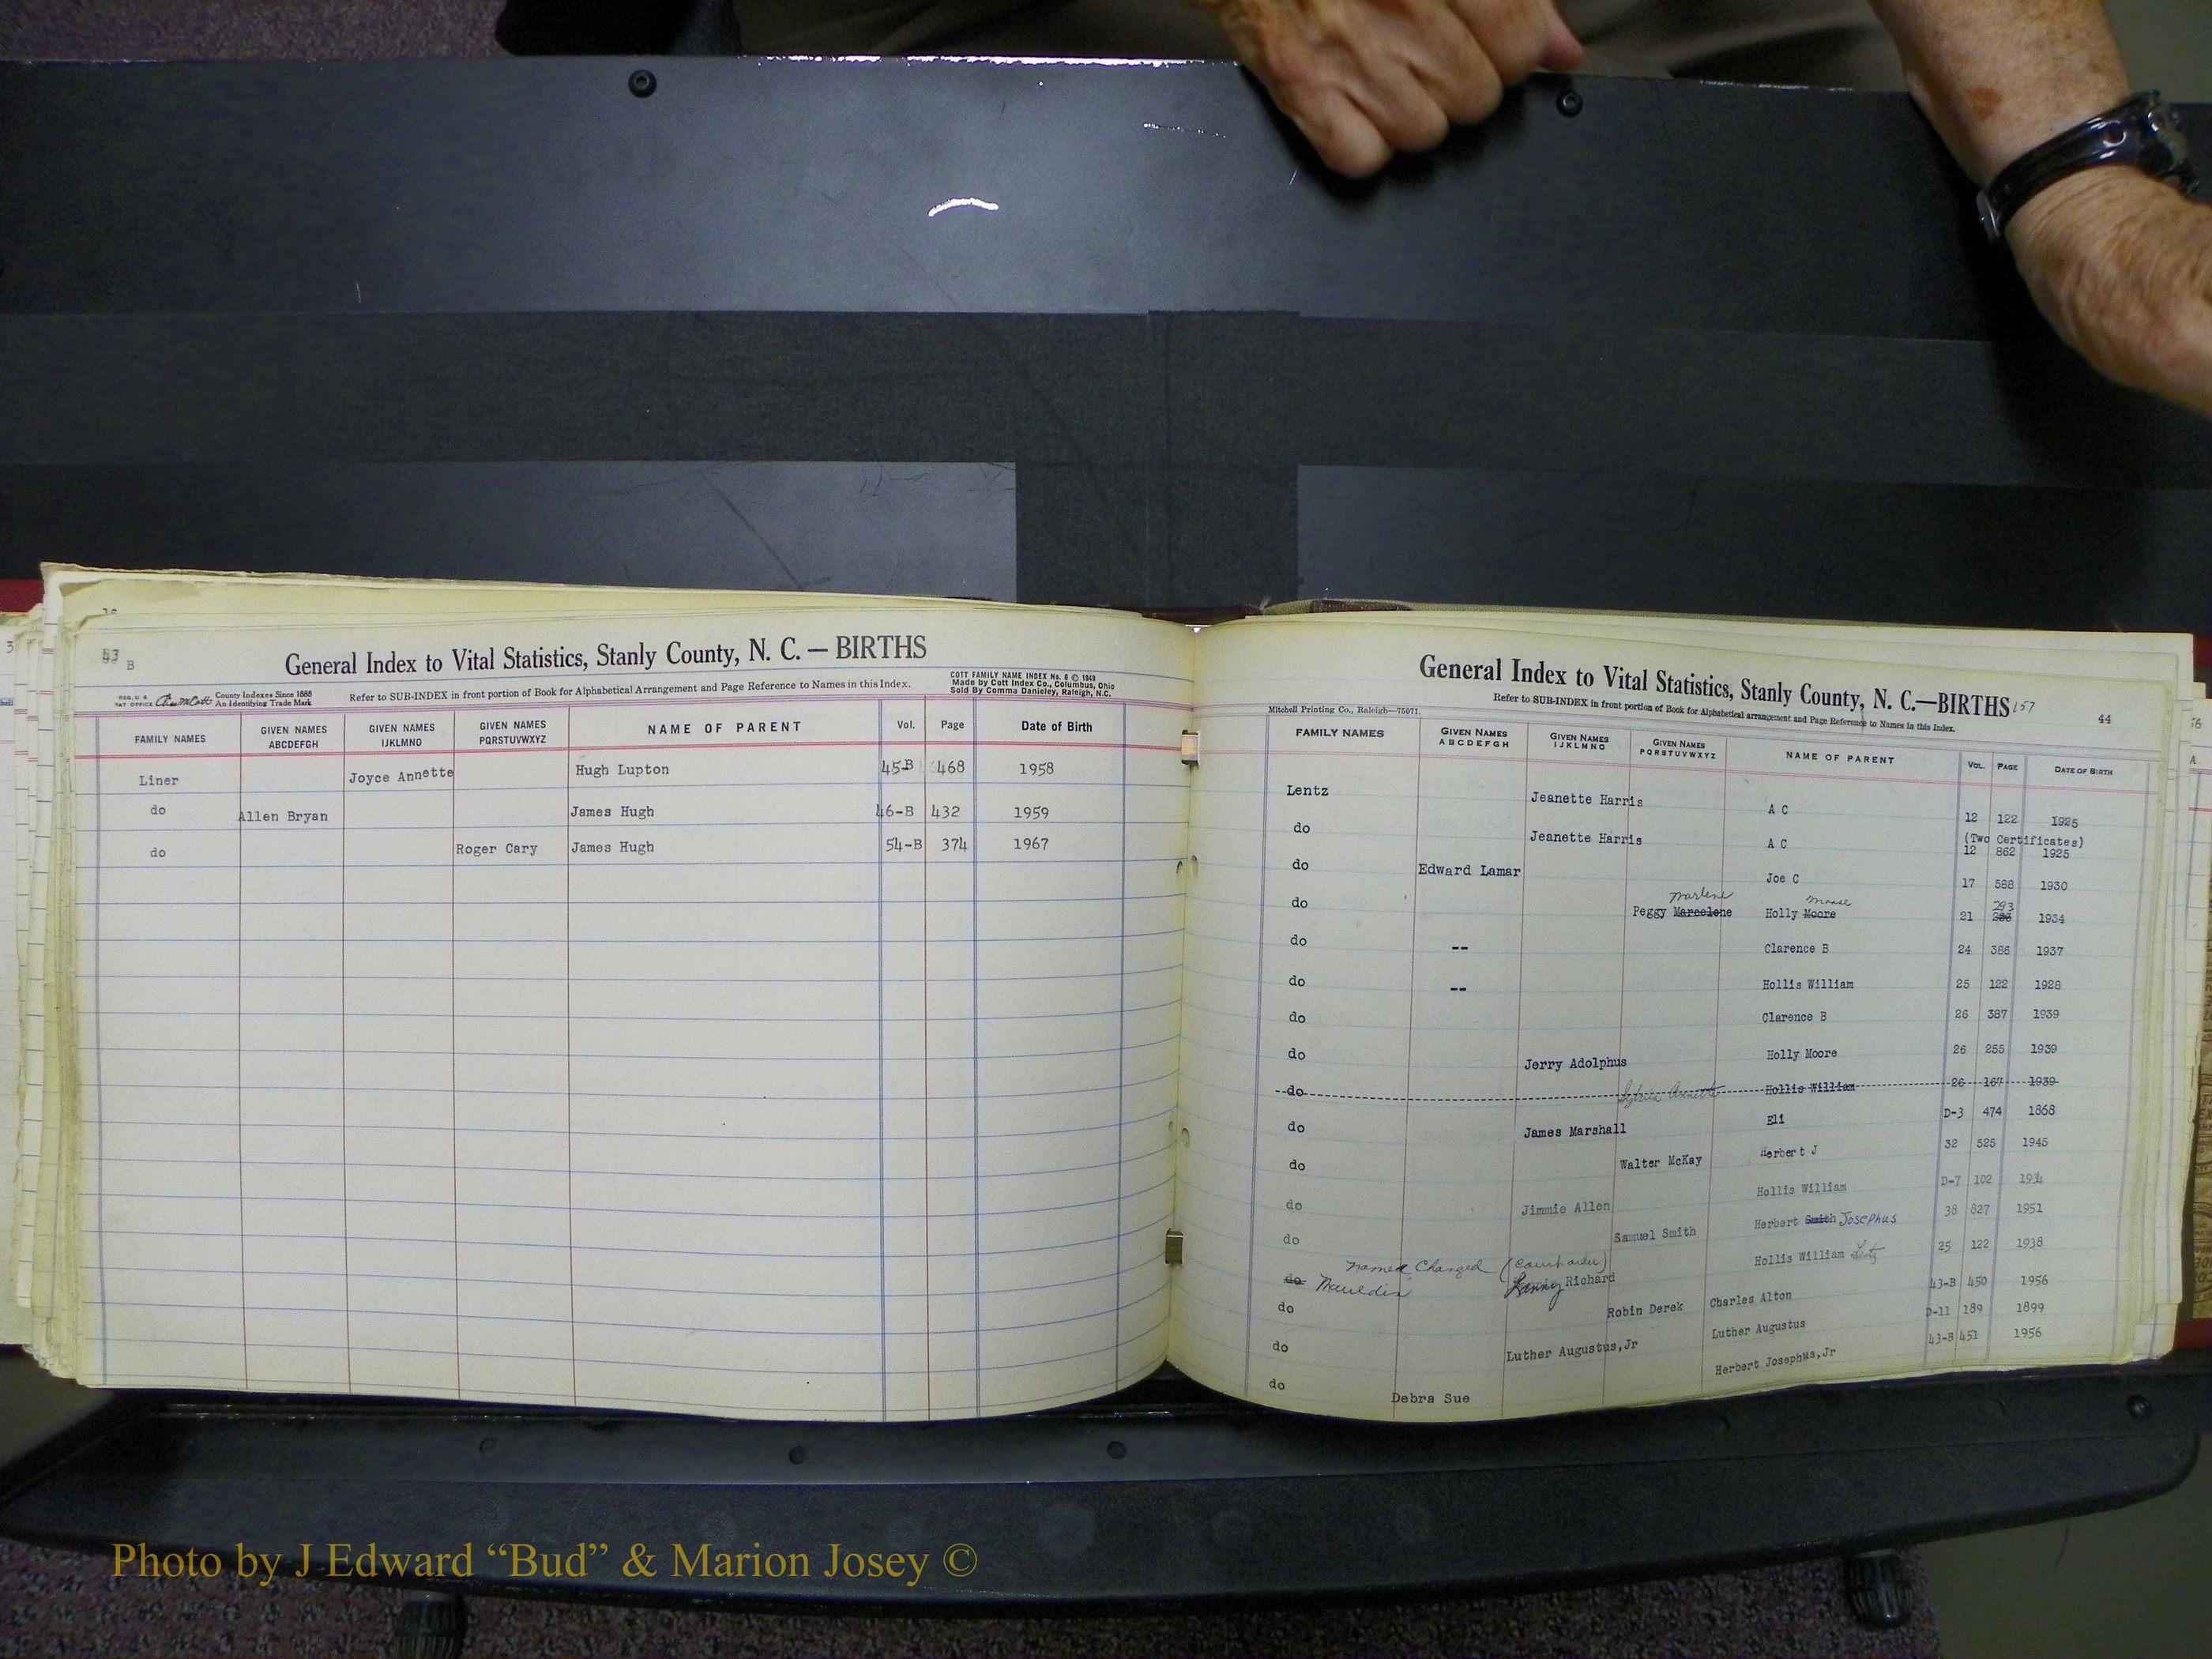 43 B
General Index to Vital Statistics, Stanly County, N. C. — BIRTHS
REG. U. S. PAT. OFFICE County Indexes Since 1888 An Identifying Trade Mark
Refer to SUB-INDEX in front portion of Book for Alphabetical Arrangement and Page Reference to Names in this Index.
COTT FAMILY NAME INDEX No. 8 © 1949
Made by Cott Index Co., Columbus, Ohio
Sold By Comma Danieley, Raleigh, N.C.
FAMILY NAMES GIVEN NAMES ABCDEFGH GIVEN NAMES IJKLMNO GIVEN NAMES PQRSTUVWXYZ NAME OF PARENT Vol. Page Date of Birth
Liner Joyce Annette Hugh Lupton 45-B 468 1958
do Allen Bryan James Hugh 46-B 432 1959
do Roger Cary James Hugh 54-B 374 1967
General Index to Vital Statistics, Stanly County, N. C.—BIRTHS 157
44
Mitchell Printing Co., Raleigh—75071.
Refer to SUB-INDEX in front portion of Book for Alphabetical arrangement and Page Reference to Names in this Index.
FAMILY NAMES GIVEN NAMES ABCDEFGH GIVEN NAMES IJKLMNO GIVEN NAMES PQRSTUVWXYZ NAME OF PARENT VOL. PAGE DATE OF BIRTH
Lentz Jeanette Harris A C 12 122 1925
(Two Certificates)
do Jeanette Harris A C 12 862 1925
do Edward Lamar Joe C 17 588 1930
Marlene 293
do Peggy Marcelene Holly Moore 21 1934
do -- Clarence B 24 386 1937
do -- Hollis William 25 122 1928
do Clarence B 26 387 1939
do Jerry Adolphus Holly Moore 26 255 1939
do Sylvia Annette Hollis William 26 167 1939
do James Marshall Eli D-3 474 1868
do Walter McKay Herbert J 32 525 1945
do Jimmie Allen Hollis William D-7 102 1934
do Samuel Smith Herbert Smith Josephus 38 827 1951
Named Changed (Court order)
do Mauldin Lanny Richard Hollis William Lentz 25 122 1938
do Robin Derek Charles Alton 43-B 450 1956
do Luther Augustus,Jr Luther Augustus D-11 189 1899
do Debra Sue Herbert Josephus,Jr 43-B 451 1956
Photo by J Edward “Bud” & Marion Josey ©